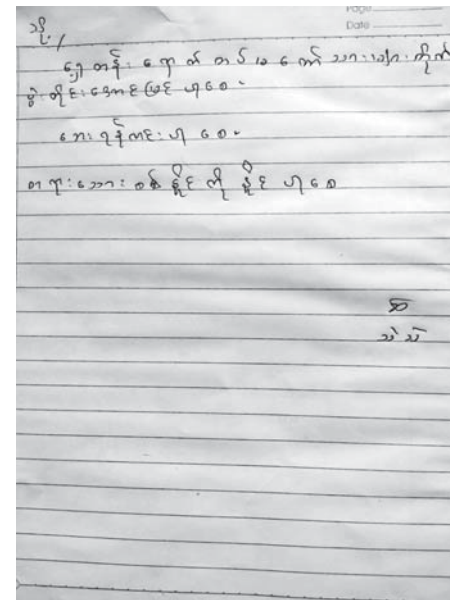 Page
Date
သို့/
ရှေ့တန်းရောက်တပ်မတော်သားများတိုက်
ပွဲတိုင်းအောင်မြင်ပါစေ။
ဘေးရန်ကင်းပါစေ။
တရားသောစစ်နိုင်ကိုနိုင်ပါစေ